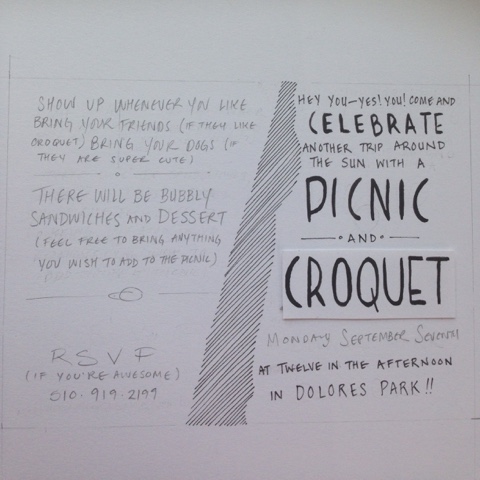 SHOW UP WHENEVER YOU LIKE
BRING YOUR FRIENDS (IF THEY LIKE
CROQUET) BRING YOUR DOGS (IF
THEY ARE SUPER CUTE)
THERE WILL BE BUBBLY
SANDWICHES AND DESSERT
(FEEL FREE TO BRING ANYTHING
YOU WISH TO ADD TO THE PICNIC)
RSVP
(IF YOU'RE AWESOME)
510.919.2199
HEY YOU—YES! YOU! COME AND
CELEBRATE
ANOTHER TRIP AROUND
THE SUN WITH A
PICNIC
AND
CROQUET
MONDAY SEPTEMBER SEVENTH
AT TWELVE IN THE AFTERNOON
IN DOLORES PARK!!